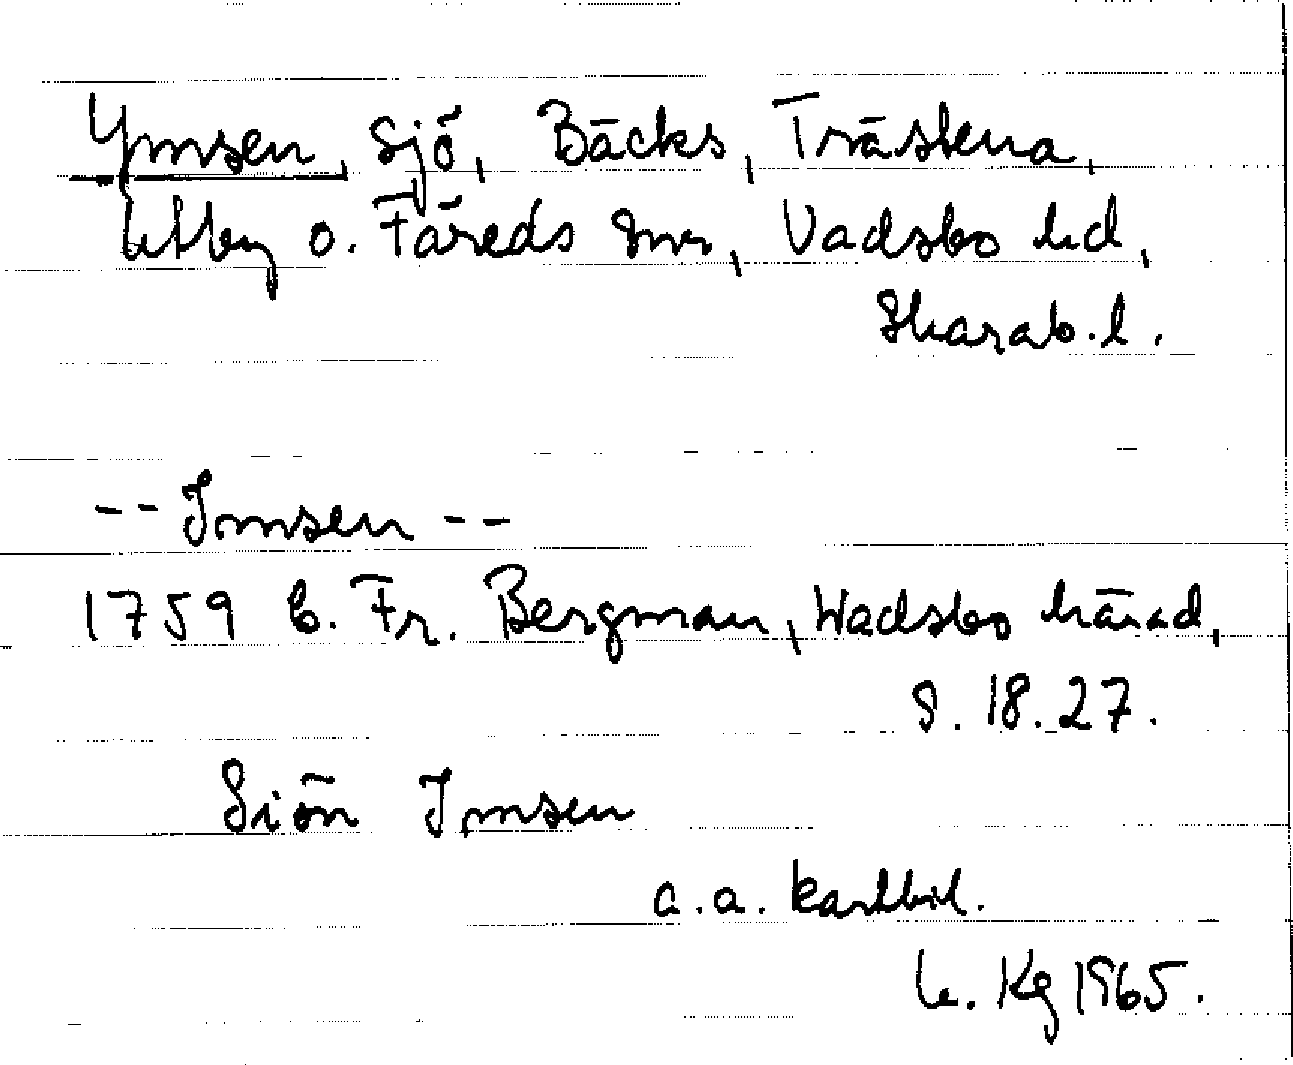 Ymsen, sjö, Bäcks, Trästena,
Utby o. Färeds snr, Vadsbo hd,
Skarab.l.
-- Imsen --
1759 C. Fr. Bergman, Wadsbo härad,
S. 18.27.
Siön Imsen
a.a. kartbil.
U. Kg 1965.